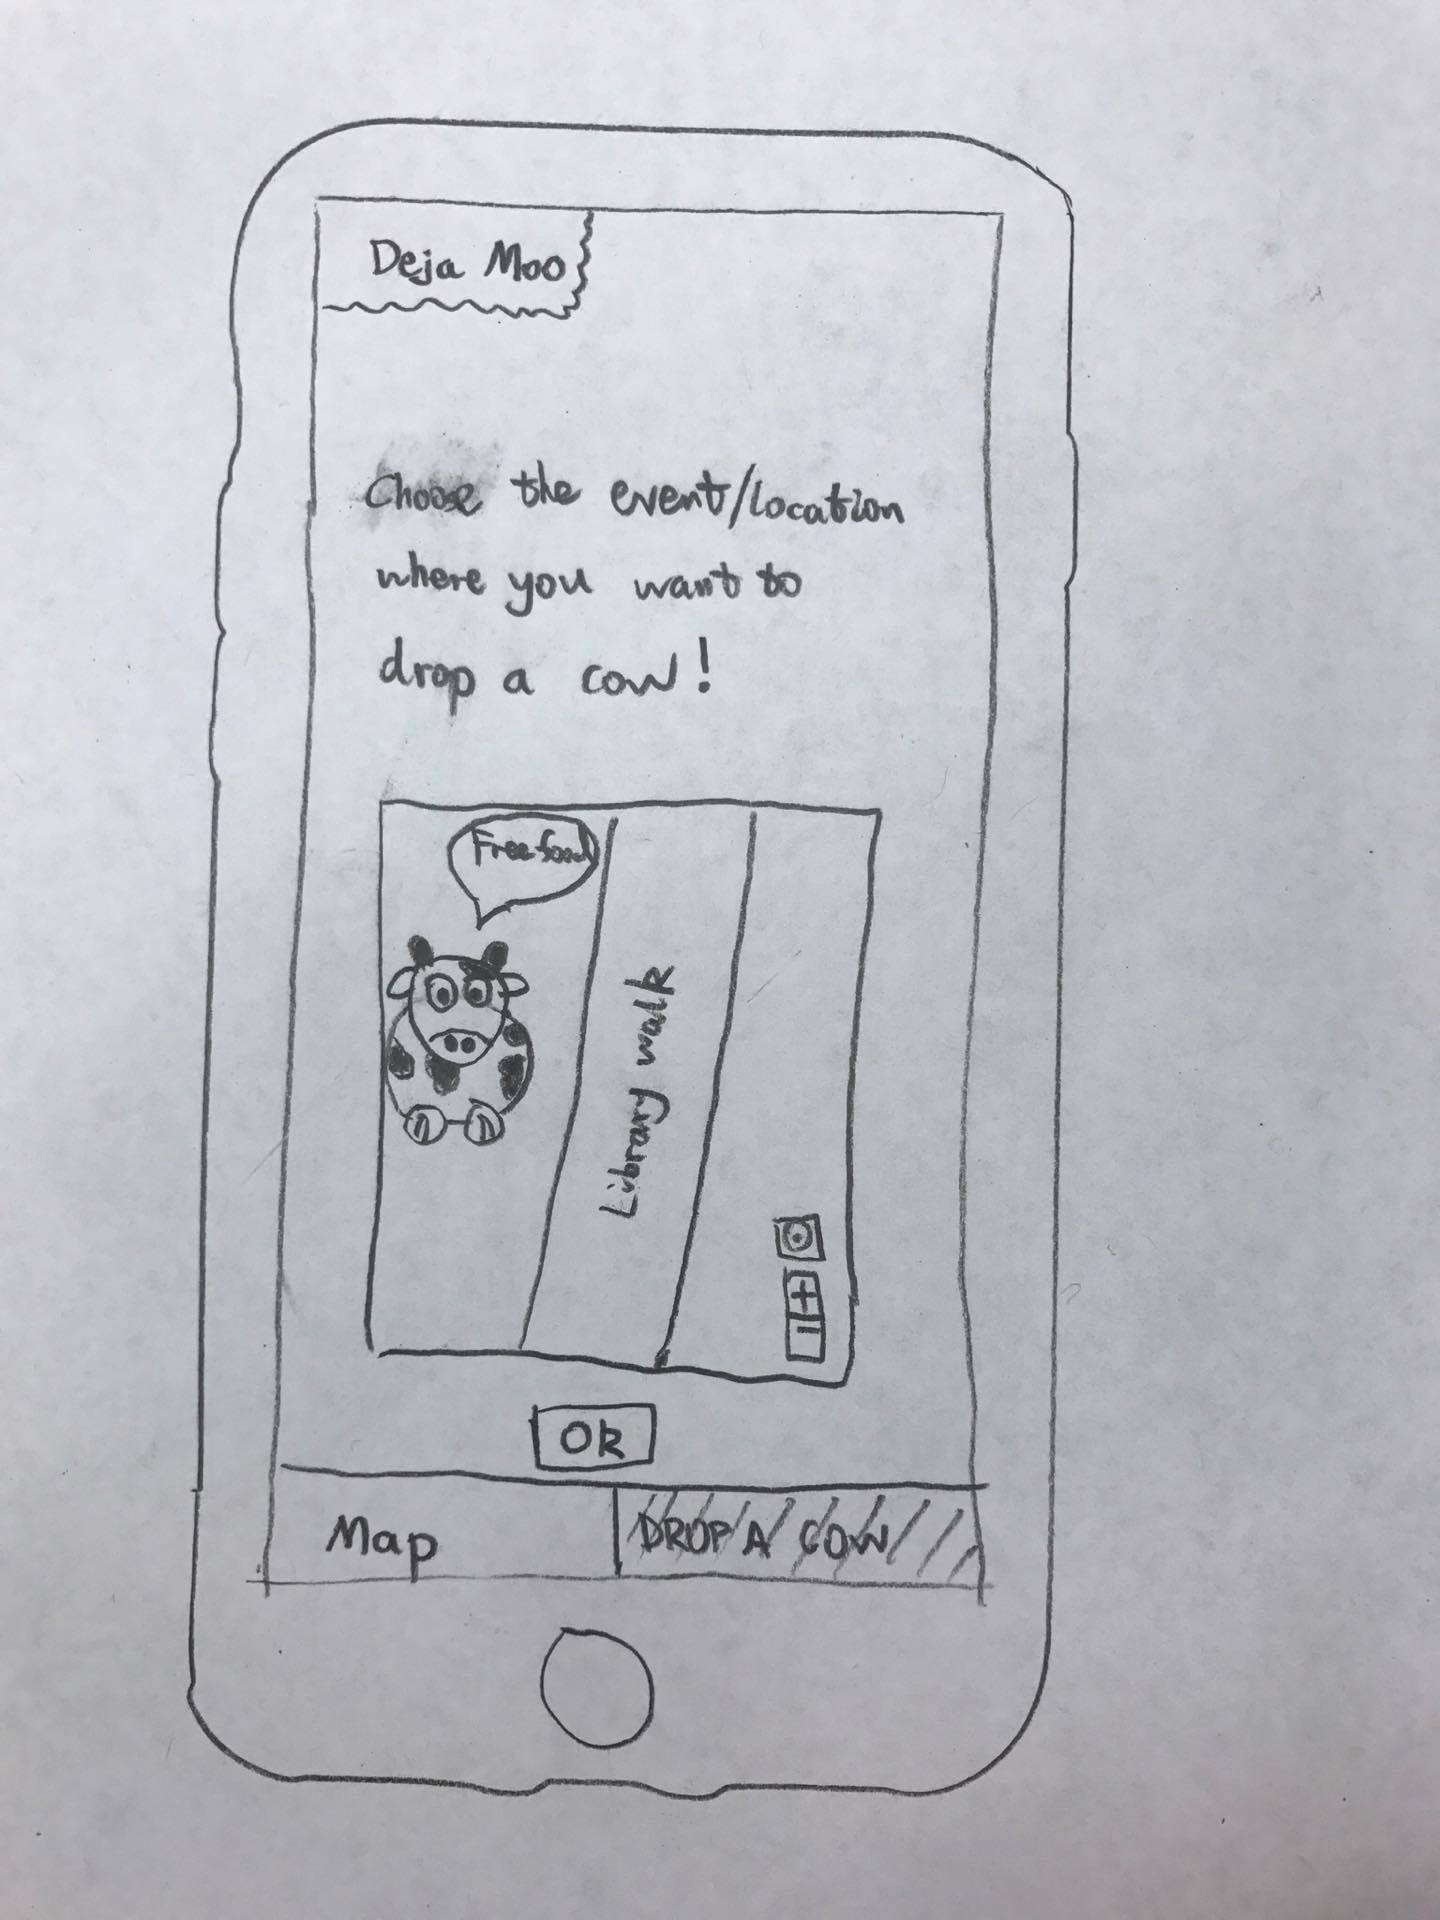 Deja Moo
Choose the event/location
where you want to
drop a cow!
Free food
Library walk
+
-
Ok
Map
DROP A COW